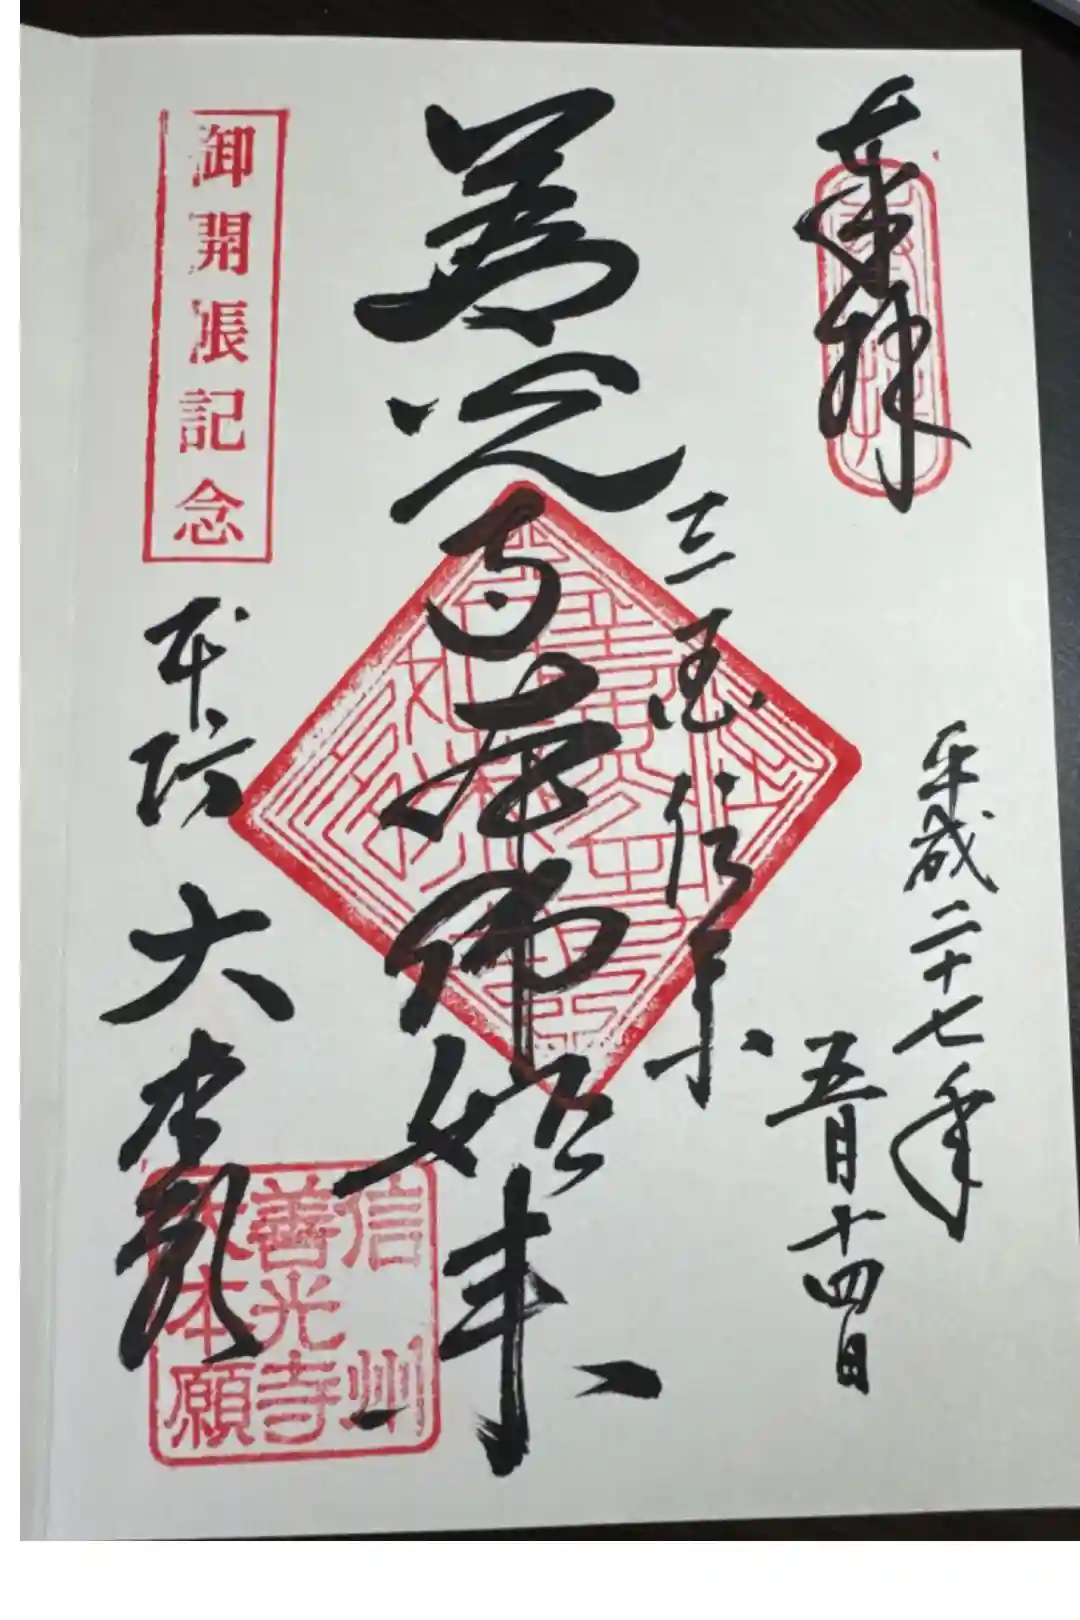 奉拝
平成二十七年
五月十四日
三国伝来
善光寺如来
御開帳記念
本坊 大本願
信州
善光寺
大本願